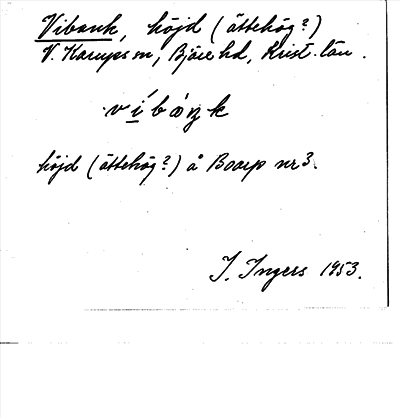 Vibank, höjd (ättehög?)
V. Karups sn, Bjäre hd, Krist. län.
víbàŋk
höjd (ättehög?) å Boarp nr 3.
I. Ingers 1953.